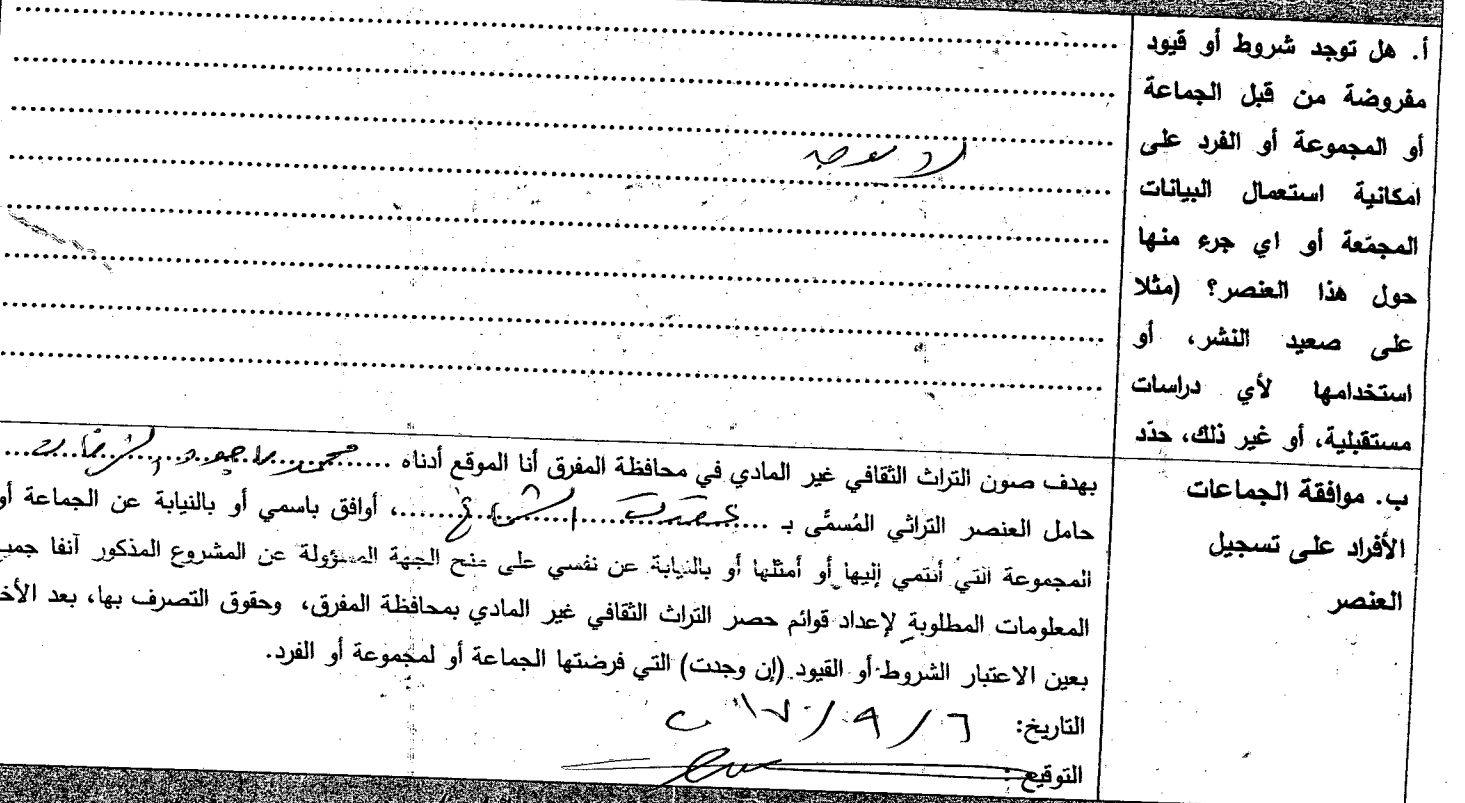 أ. هل توجد شروط أو قيود
مفروضة من قبل الجماعة
أو المجموعة أو الفرد على
امكانية استعمال البيانات
المجمّعة أو اي جرء منها
حول هذا العنصر؟ (مثلا
على صعيد النشر، أو
استخدامها لأي دراسات
مستقبلية، أو غير ذلك، حدّد
لا يوجد
ب. موافقة الجماعات
الأفراد على تسجيل
العنصر
بهدف صون التراث الثقافي غير المادي في محافظة المفرق أنا الموقع أدناه ..... محمد
حامل العنصر التراثي المُسمَّى بـ .....، أوافق باسمي أو بالنيابة عن الجماعة أو
المجموعة التي أنتمي إليها أو أمثلها أو بالنيابة عن نفسي على منح الجهة المسؤولة عن المشروع المذكور آنفا جميع
المعلومات المطلوبة لإعداد قوائم حصر التراث الثقافي غير المادي بمحافظة المفرق، وحقوق التصرف بها، بعد الأخذ
بعين الاعتبار الشروط أو القيود (إن وجدت) التي فرضتها الجماعة أو لمجموعة أو الفرد.
التاريخ: ٦ / ٩ / ٢٠١٧
التوقيع: